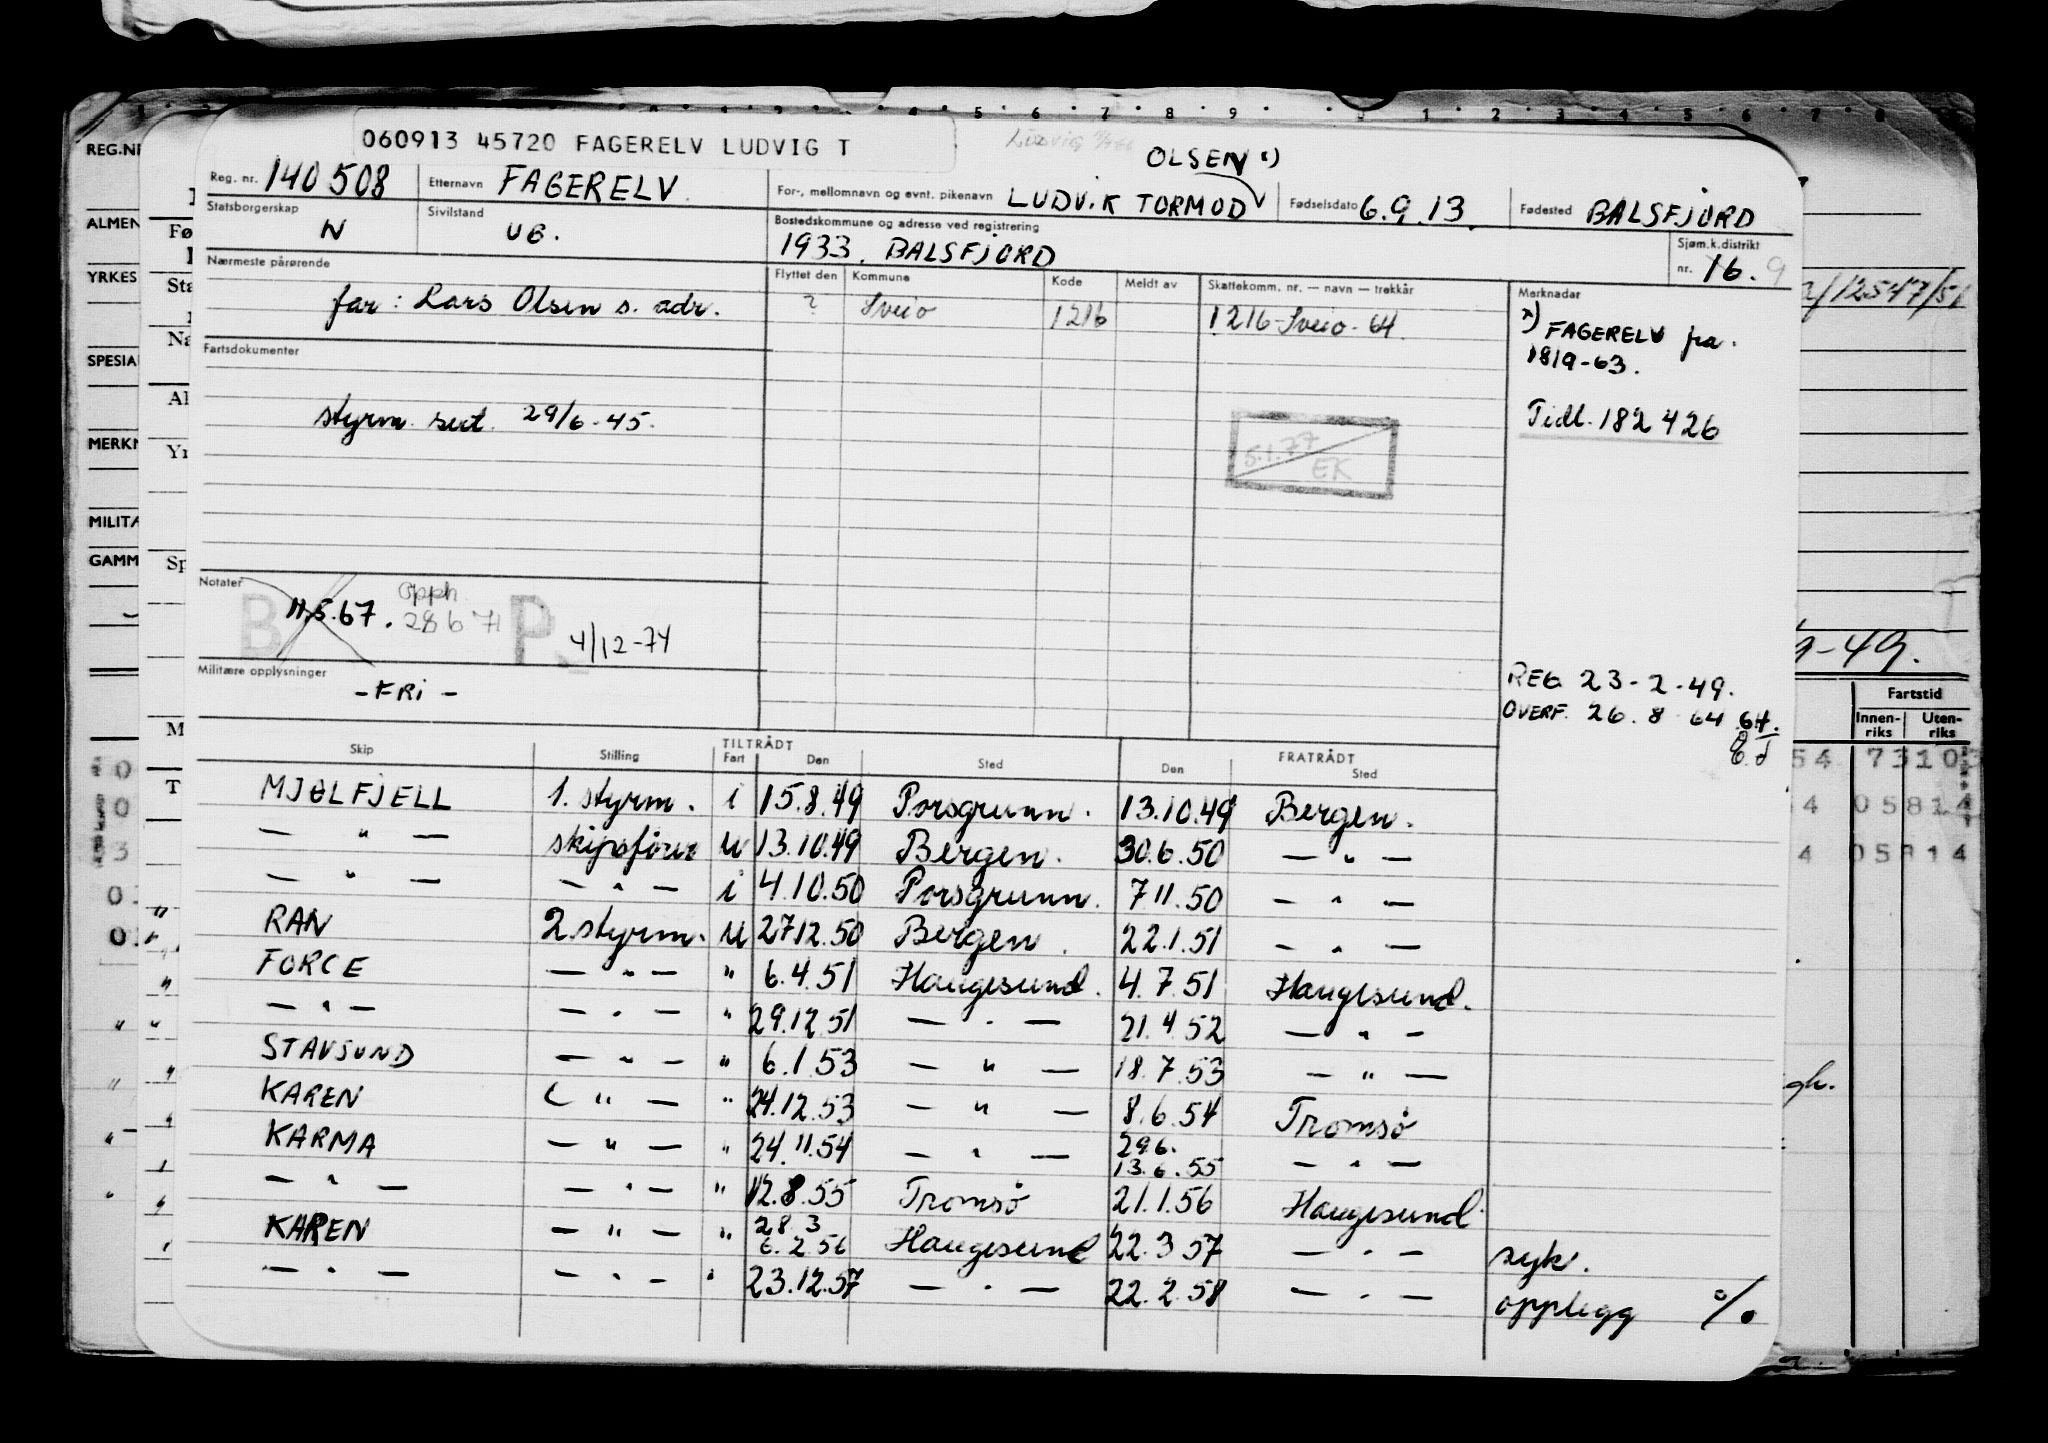 060913 45720 FAGERELV LUDVIG T
OLSEN x)
Reg. nr. 140508 Etternavn FAGERELV For-, mellomnavn og evnt. pikenavn LUDVIK TORMOD Fødselsdato 6.9.13. Fødested BALSFJORD
Statsborgerskap N Sivilstand UG. Bostedskommune og adresse ved registrering 1933. BALSFJORD Sjøm.k.distrikt nr. 16. 9
Nærmeste pårørende
far: Lars Olsen s. adr.
Flyttet den Kommune Kode Meldt av Skattekomm. nr. — navn — trekkår Merknader
? Sveio 1216 1216-Sveio-64
x) FAGERELV fra
1819-63.
Tidl. 182426
Fartsdokumenter
styrm. sert. 29/6-45.
5.1.77
EK
Notater
B 11.5.67. opph. 28 6 71 P 4/12-74
Militære opplysninger
-FRI-
REG. 23-2-49.
OVERF. 26.8 64
Skip Stilling TILTRÅDT Fart Den Sted FRATRÅDT Den Sted
MJØLFJELL 1. styrm. i 15.8.49 Porsgrunn. 13.10.49 Bergen.
— " — skipsfører u 13.10.49 Bergen. 30.6.50 — " —
— " — — " — i 4.10.50 Porsgrunn. 7 11.50 — " —
RAN 2. styrm. u 27 12.50 Bergen. 22.1.51 — " —
FORCE — " — " 6.4.51 Haugesund. 4.7.51 Haugesund.
— " — — " — " 29.12.51 — " — 21.4.52 — " —
STAVSUND — " — " 6.1.53 — " — 18.7.53 — " —
KAREN — " — " 24.12.53 — " — 8.6.54 Tromsö
KARMA — " — " 24.11.54 — " — 29.6. 13.6.55 — " —
— " — — " — " 12.8.55 Tromsö 21.1.56 Haugesund
KAREN — " — " 28 3 6.2 56 Haugesund 22.3 57 — " — syk.
— " — — " — " 23.12.57 — " — 22.2.58 — " — opplegg %
REG.NR
ALMEN
YRKES
SPESIA
MERKN
MILITÆ
GAMM
Fø
Sta
Na
Al
Yr
Sp
M
T
12547/51
-49.
Fartstid
Innen-riks Uten-riks
54 73103
4 05814
4 05814
gh.